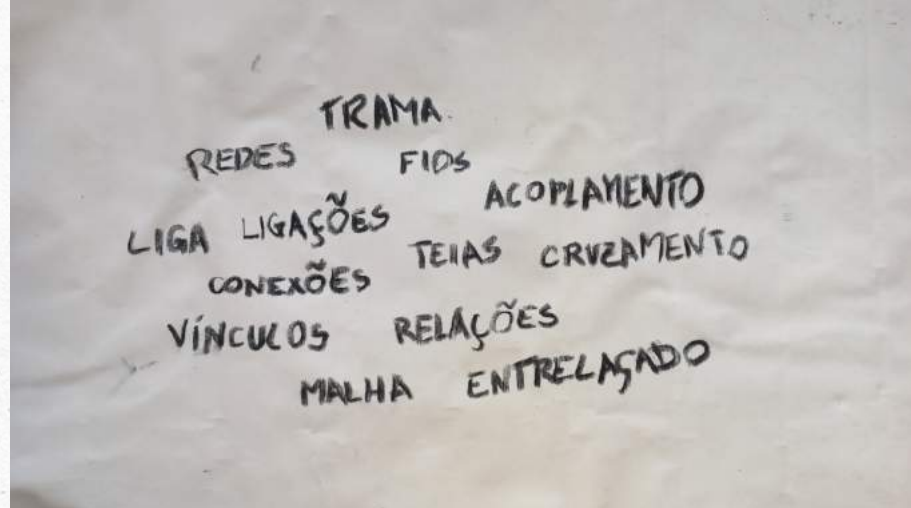 TRAMA.
REDES FIOS
ACOPLAMENTO
LIGA LIGAÇÕES
TEIAS CRUZAMENTO
CONEXÕES
VÍNCULOS RELAÇÕES
MALHA ENTRELAÇADO